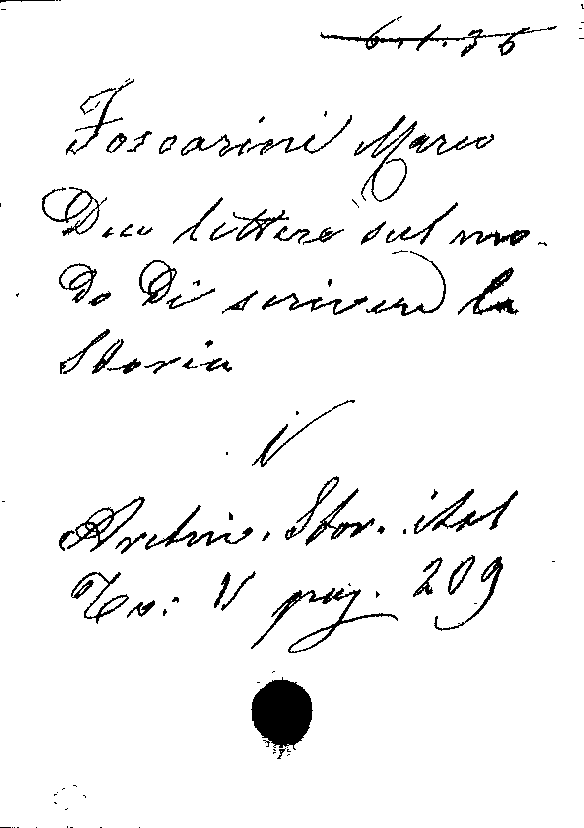 6.1.36
Foscarini Marco
Due lettere sul mo-
do di scrivere la
Storia
V
Archiv. Stor. ital
To: V pag. 209